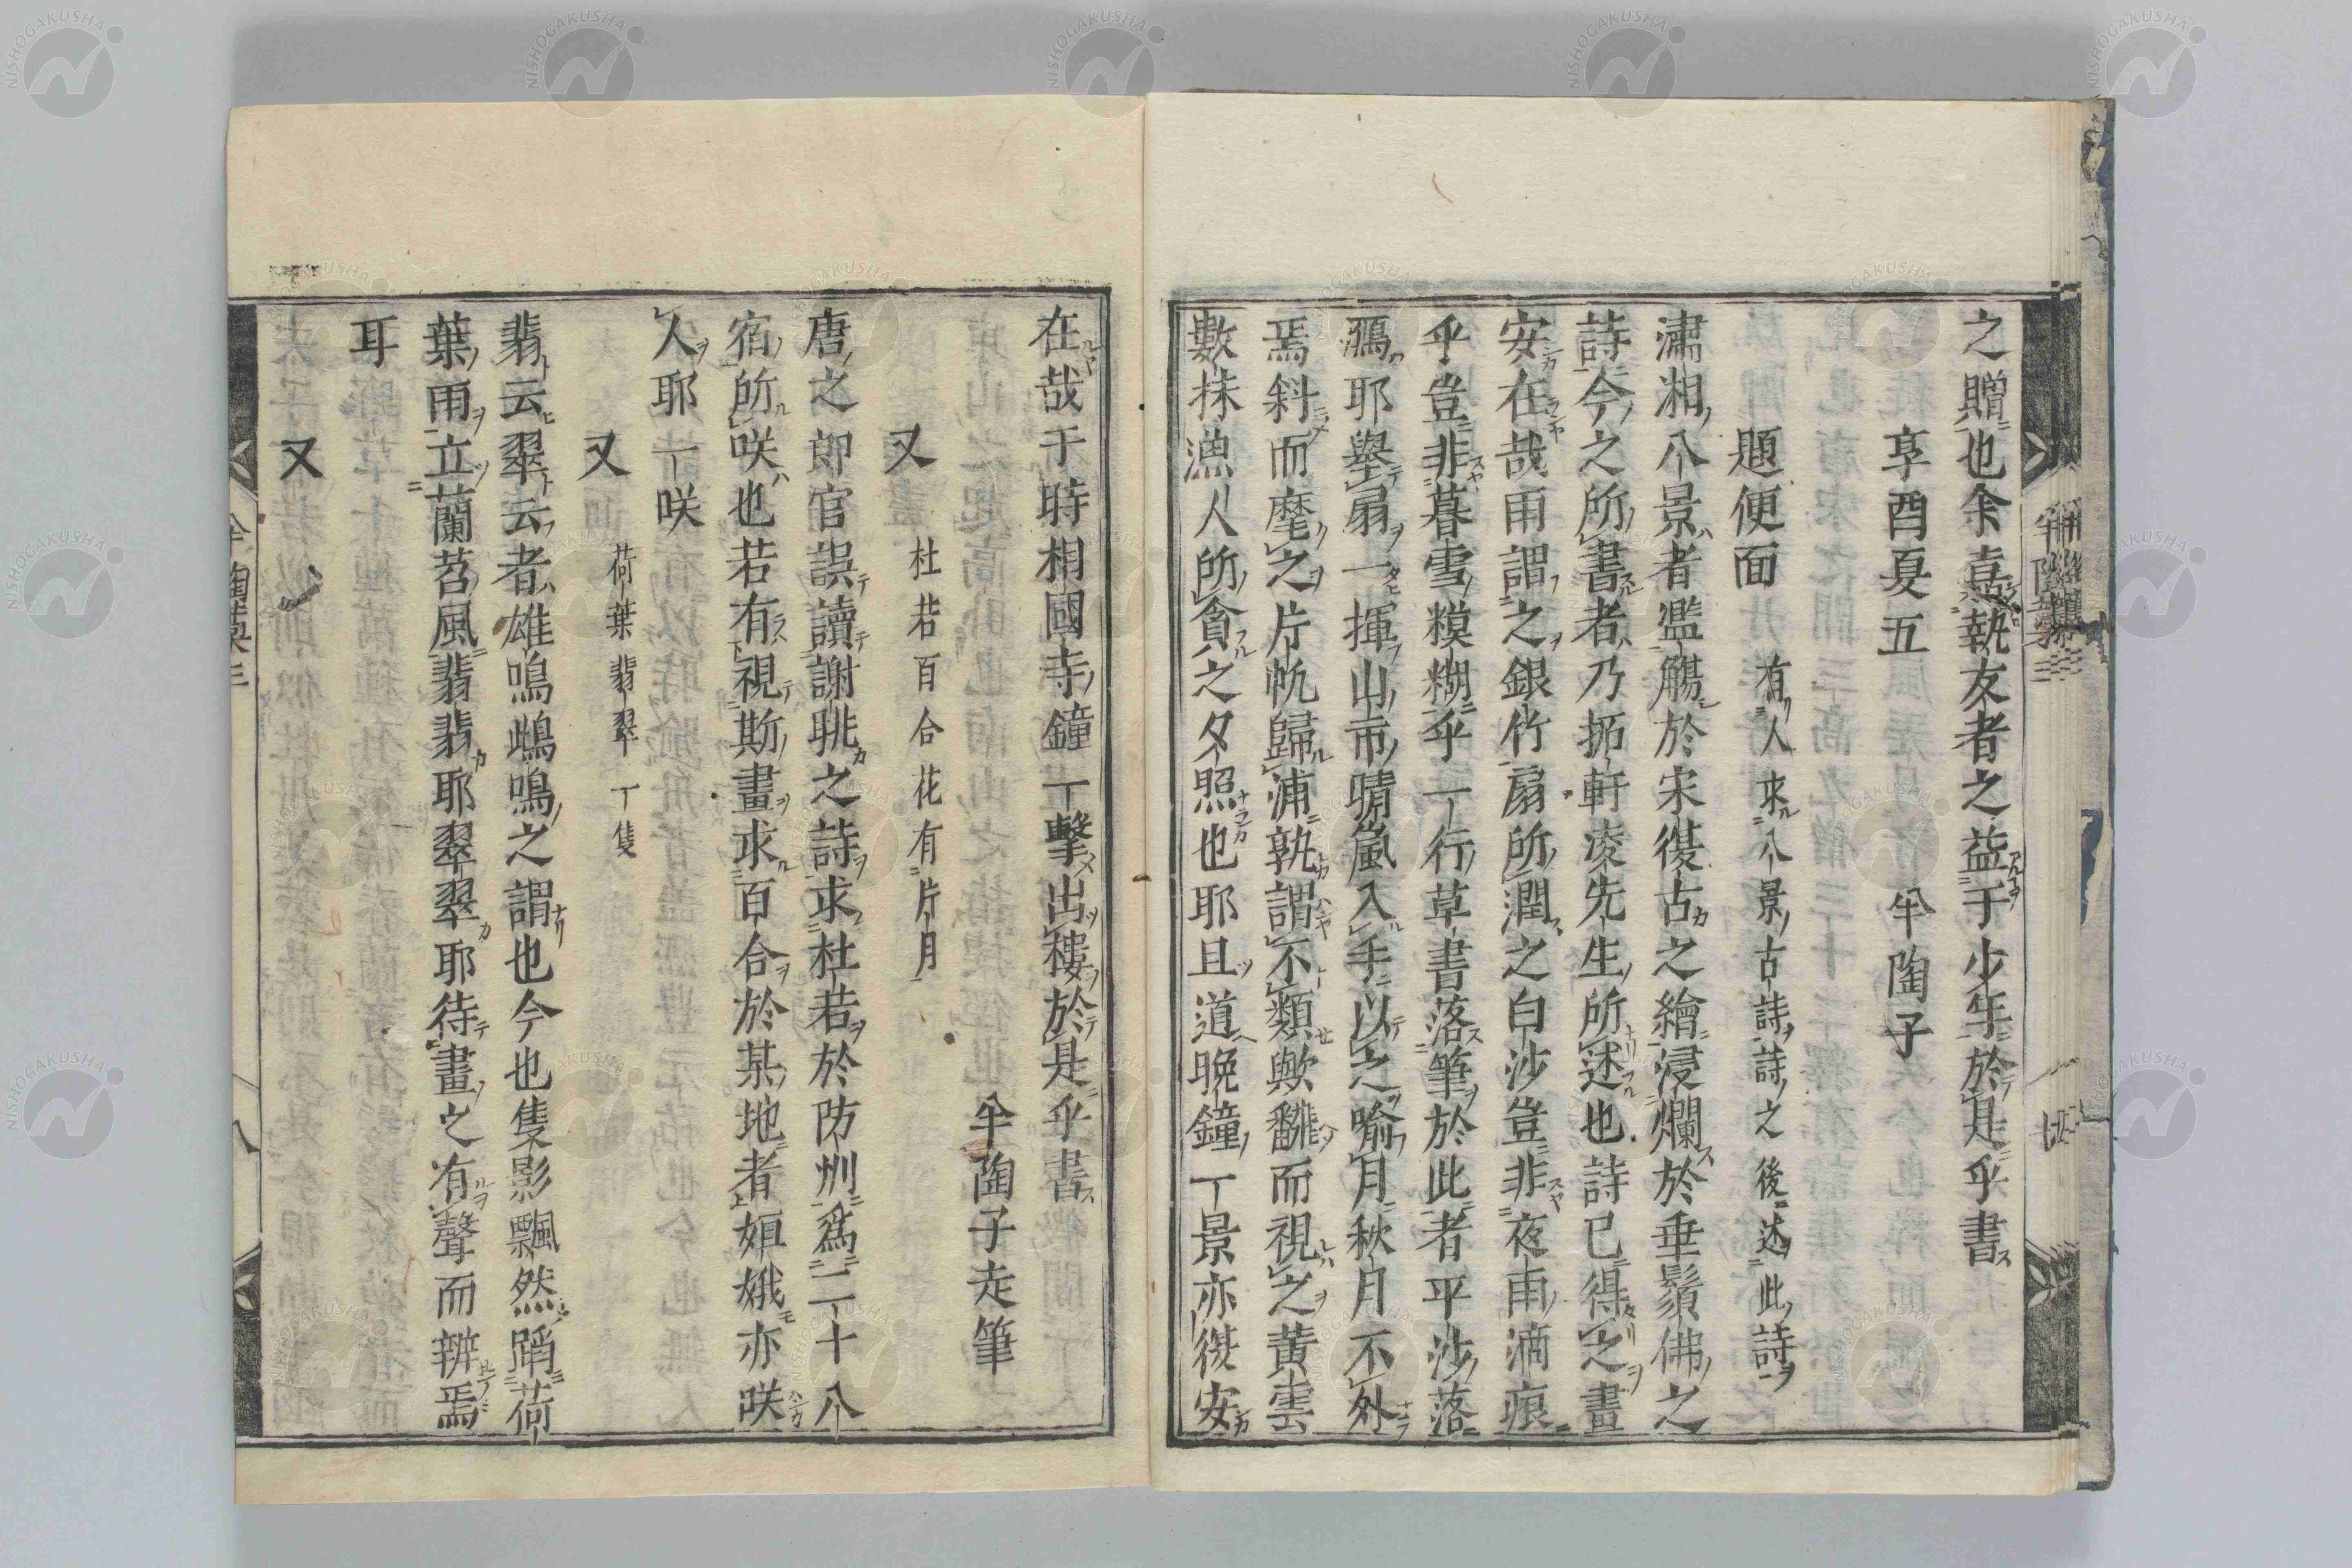 之贈也余嘉執友者之益于少年於是乎書
享酉夏五　半陶子
題便面　有人求八景古詩詩之後述此詩
瀟湘八景者濫觴於宋復古之繪浸爛於垂鬚佛之
詩今之所書者乃拓軒凌先生所述也詩已得之畫
安在哉雨謂之銀竹扇所潤之白沙豈非夜雨滴痕
乎豈非暮雪糢糊乎一行草書落筆於此者平沙落
鴈耶擧扇一揮山市晴嵐入手以之喻月秋月不外
焉斜而麾之片帆歸浦孰謂不類歟飜而視之黄雲
數抹漁人所貪之夕照也耶且道晩鐘一景亦復安
在哉于時相國寺鐘一擊出樓於是乎書
半陶子走筆
又　杜若百合花有片月
唐之郎官誤讀謝朓之詩求杜若於防州爲二十八
宿所咲也若有視斯畫求百合於某地者姮娥亦咲
人耶一咲
又　荷葉翡翠一隻
翡云翠云者雄鳴鴟鳴之謂也今也隻影飄然蹈荷
葉雨立蘭苕風翡翡耶翠翠耶待畫之有聲而辨焉
耳
又
半陶藁三
八